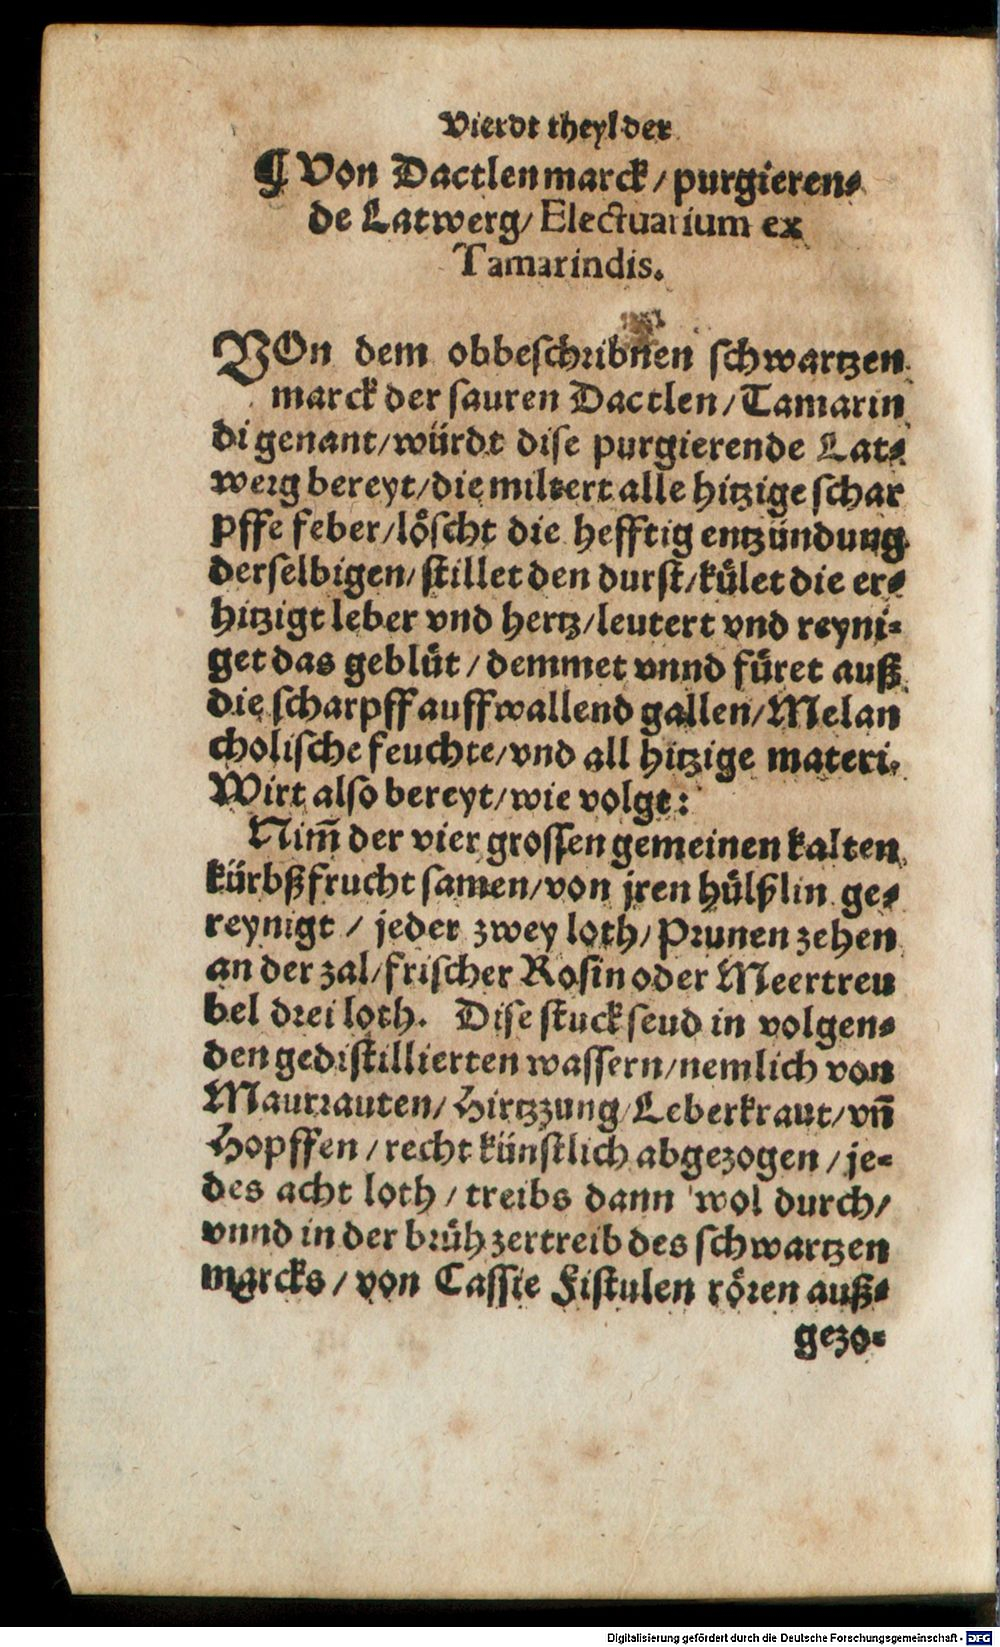 Vierdt theyl der
¶ Von Dactlenmarck / purgieren⸗
de Latwerg / Electuarium ex
Tamarindis.
VOn dem obbeschribnen schwartzen
marck der sauren Dactlen / Tamarin
di genant / würdt dise purgierende Lat⸗
werg bereyt / die miltert alle hitzige schar
pffe feber / loͤscht die hefftig entzündung
derselbigen / stillet den durst / kuͤlet die er⸗
hitzigt leber vnd hertz / leutert vnd reyni⸗
get das gebluͤt / demmet vnnd fuͤret auß
die scharpff auffwallend gallen / Melan
cholische feuchte / vnd all hitzige materi.
Wirt also bereyt / wie volgt:
Nim̃ der vier grossen gemeinen kalten
kürbßfrucht samen / von jren huͤlßlin ge⸗
reynigt / jeder zwey loth / Prunen zehen
an der zal / frischer Rosin oder Meertreu
bel drei loth. Dise stuck seud in volgen⸗
den gedistillierten wassern / nemlich von
Maurrauten / Hirtzzung / Leberkraut / vñ
Hopffen / recht künstlich abgezogen / je⸗
des acht loth / treibs dann wol durch /
vnnd in der bruͤh zertreib des schwartzen
marcks / von Cassie Fistulen roͤren auß⸗
gezo⸗
Digitalisierung gefördert durch die Deutsche Forschungsgemeinschaft - DFG